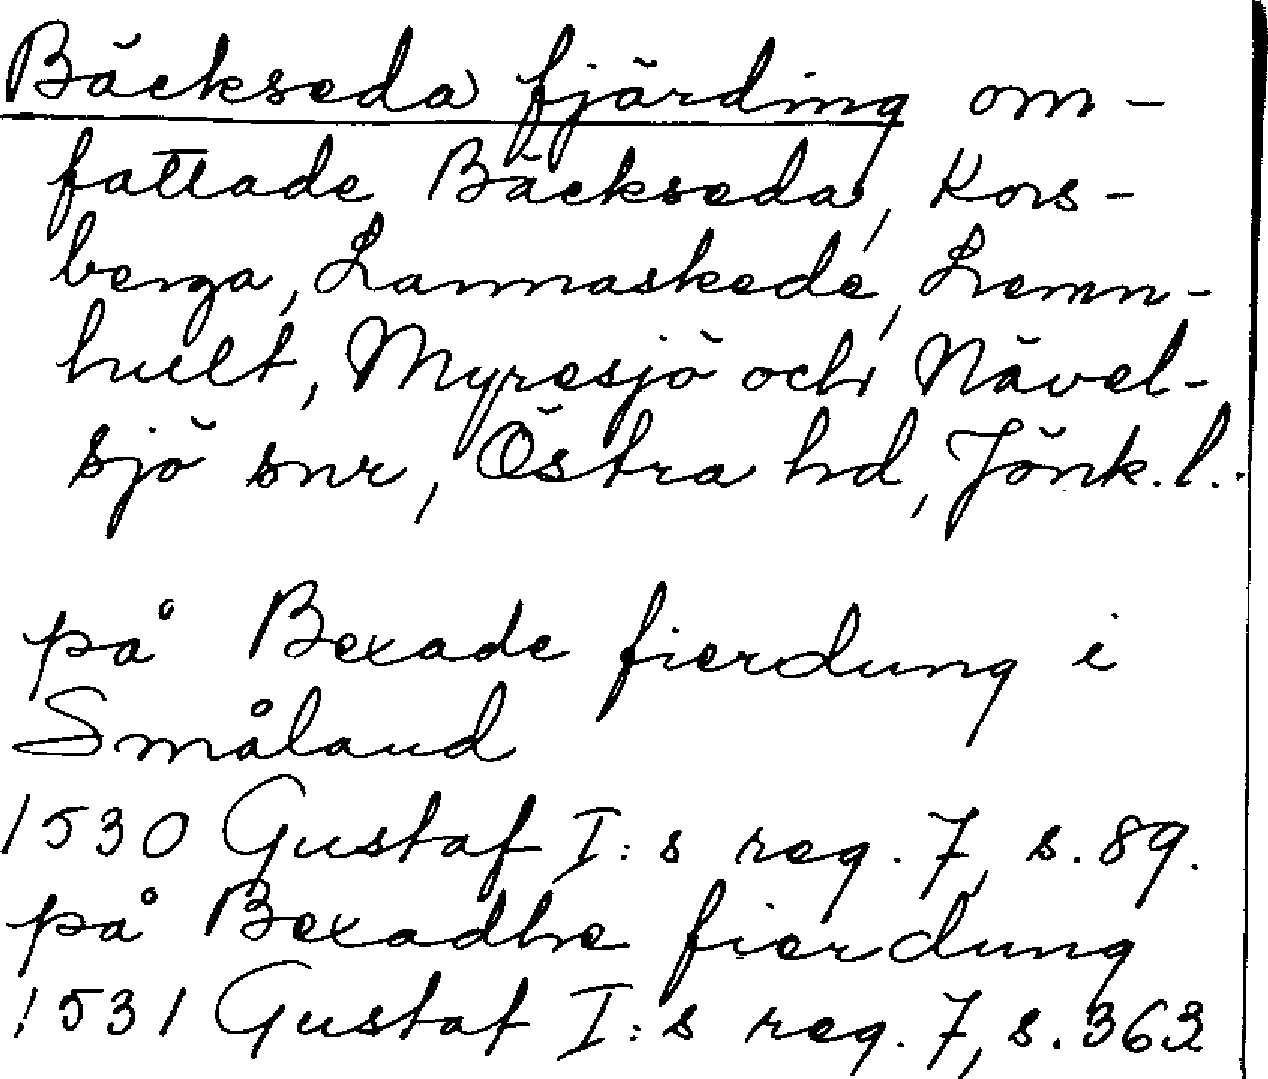 Bäckseda fjärding om-
fattade Bäckseda, Kors-
berga, Lannaskede, Lemn-
hult, Myresjö och Nävel-
sjö snr, Östra hd, Jönk. l.
på Bexade fierdung i
Småland
1530 Gustaf I:s reg. 7, s. 89.
på Bexadhe fierdung
1531 Gustaf I:s reg. 7, s. 363